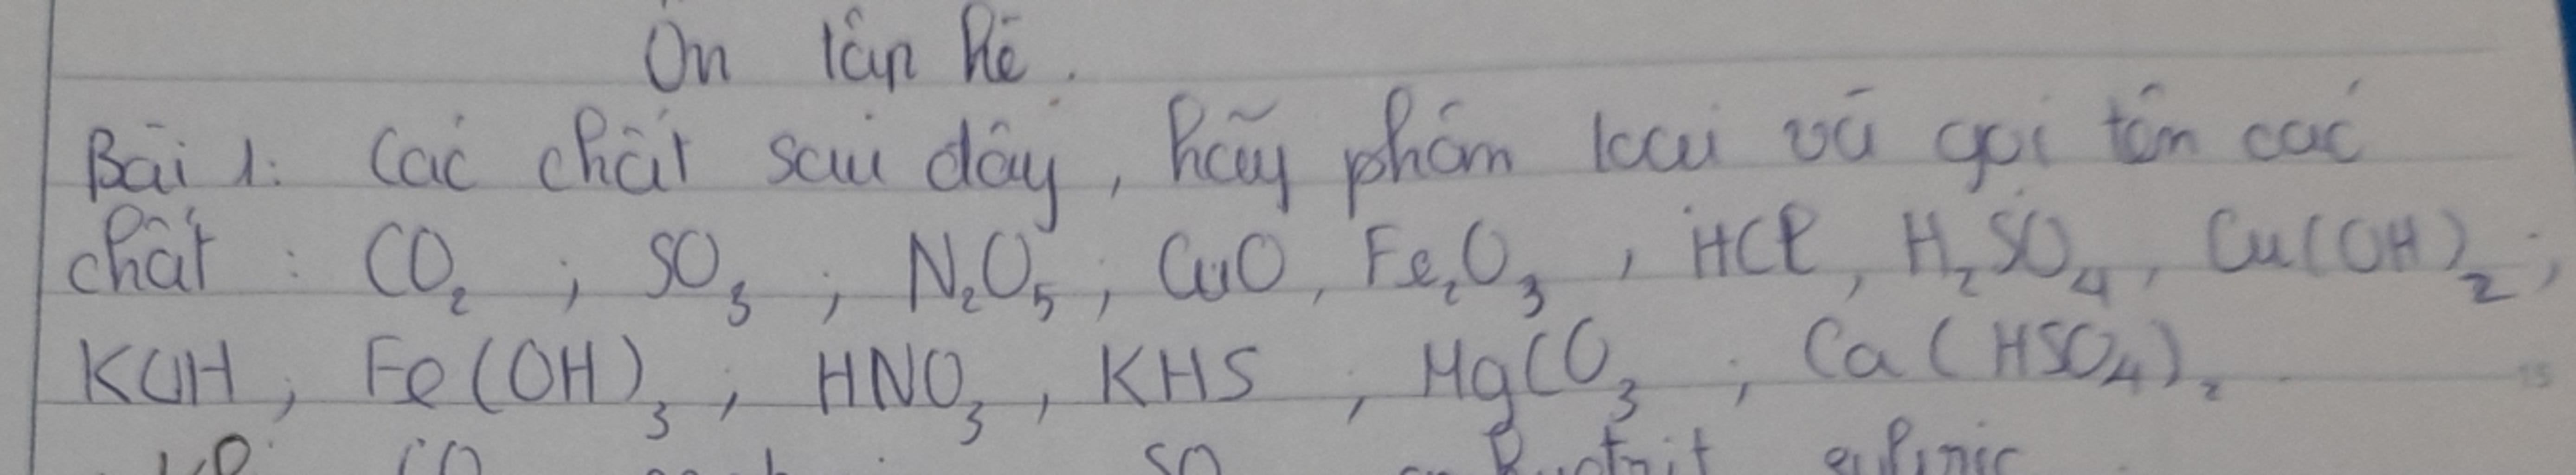 Ôn tập hè.
Bài 1: Các chất sau đây, hãy phân loại và gọi tên các
chất : CO₂ ; SO₃ ; N₂O₅ ; CuO, Fe₂O₃ , HCl, H₂SO₄, Cu(OH)₂ ;
KOH, Fe(OH)₃ , HNO₃ , KHS , MgCO₃ , Ca(HSO₄)₂ .